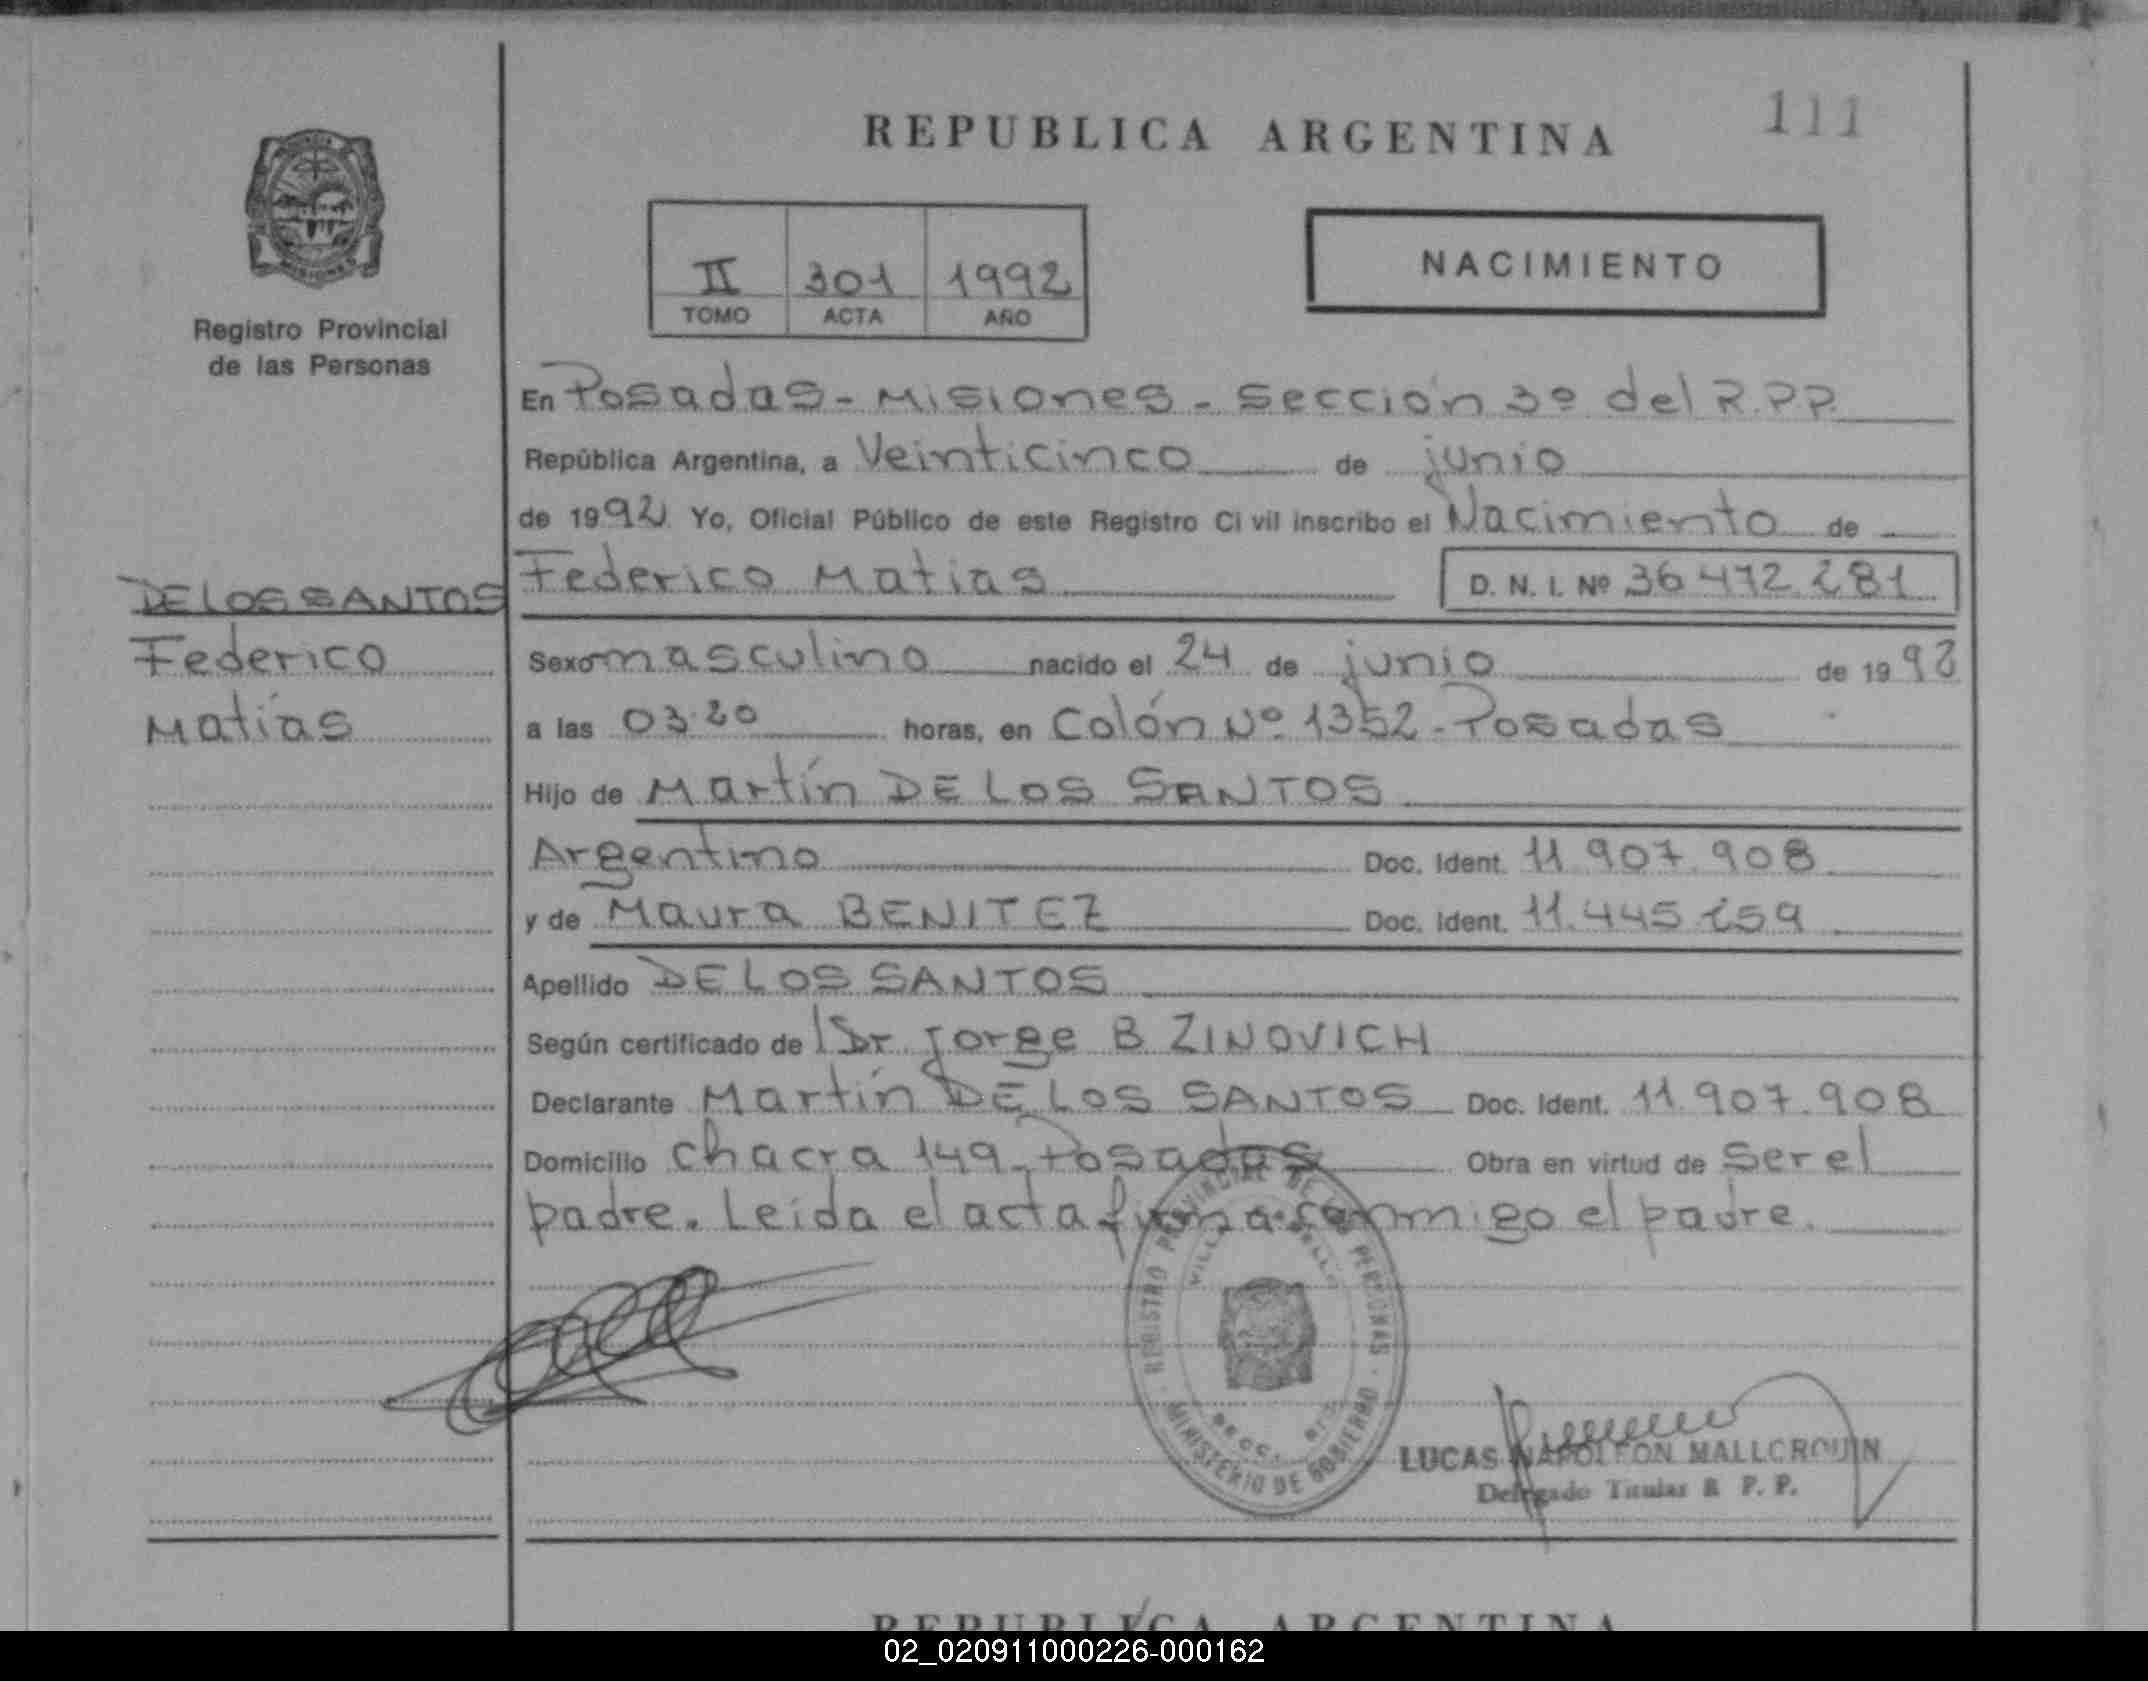 111
REPUBLICA ARGENTINA
II 301 1992
TOMO ACTA AÑO
NACIMIENTO
MISIONES
Registro Provincial
de las Personas
En Posadas - Misiones - Sección 3º del R.P.P.
República Argentina, a Veinticinco de junio
de 1992 Yo, Oficial Público de este Registro Ci vil inscribo el Nacimiento de
Federico Matias D. N. I. Nº 36 472 281
DE LOS SANTOS
Federico
Matías
Sexo masculino nacido el 24 de junio de 1992
a las 03.20 horas, en Colón Nº 1352 - Posadas
Hijo de Martín DE LOS SANTOS
Argentino Doc. Ident. 11 907.908
y de Maura BENITEZ Doc. Ident. 11.445.259
Apellido DE LOS SANTOS
Según certificado de Dr Jorge B ZINOVICH
Declarante Martín DE LOS SANTOS Doc. Ident. 11.907.908
Domicilio chacra 149 - Posadas Obra en virtud de Ser el
padre. Leida el acta firma conmigo el padre.
REGISTRO PROVINCIAL DE LAS PERSONAS
MINISTERIO DE GOBIERNO
LUCAS NAPOLEON MALLORQUIN
Delegado Titular R P. P.
REPUBLICA ARGENTINA
02_020911000226-000162